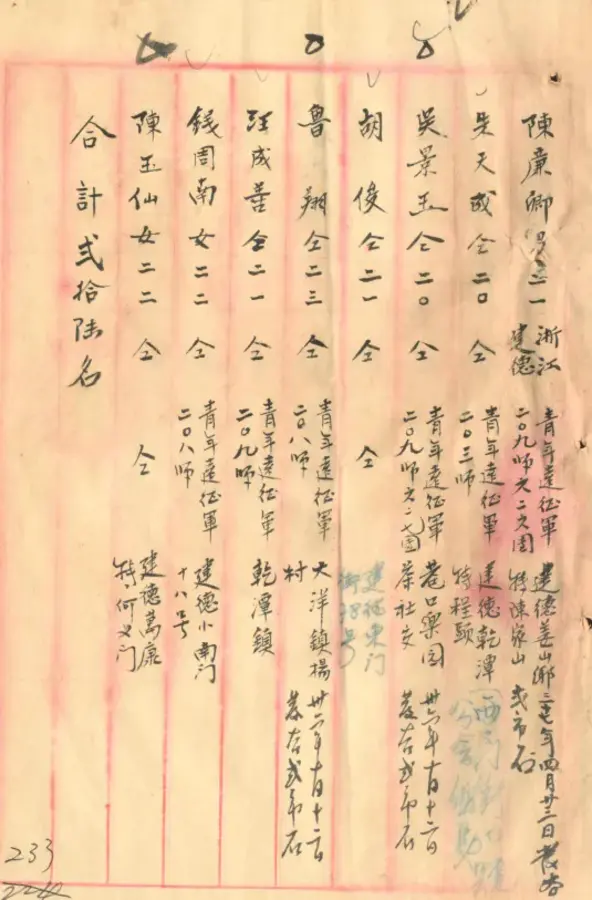 陳廉卿 男 二一 浙江建德 青年遠征軍二〇九師六二六團 建德姜山鄉轉陳家山 三七年四月廿三日發谷弍市石
吳天成 仝 二〇 仝 青年遠征軍二〇三師 建德乾潭轉程頭
吳景玉 仝 二〇 仝 青年遠征軍二〇九師六二七團 巷口樂園茶社交 卅六年十月十二日發谷弍市石
胡俊 仝 二一 仝 仝 建德東门街 號
魯翔 仝 二三 仝 青年遠征軍二〇八師 大洋鎮楊村 卅六年十月十二日發谷弍市石
汪成善 仝 二一 仝 青年遠征軍二〇九師 乾潭鎮
錢周南 女 二二 仝 青年遠征軍二〇八師 建德小南门十八号
陳玉仙 女 二二 仝 仝 建德萬康轉何义门
合計弍拾陸名
233